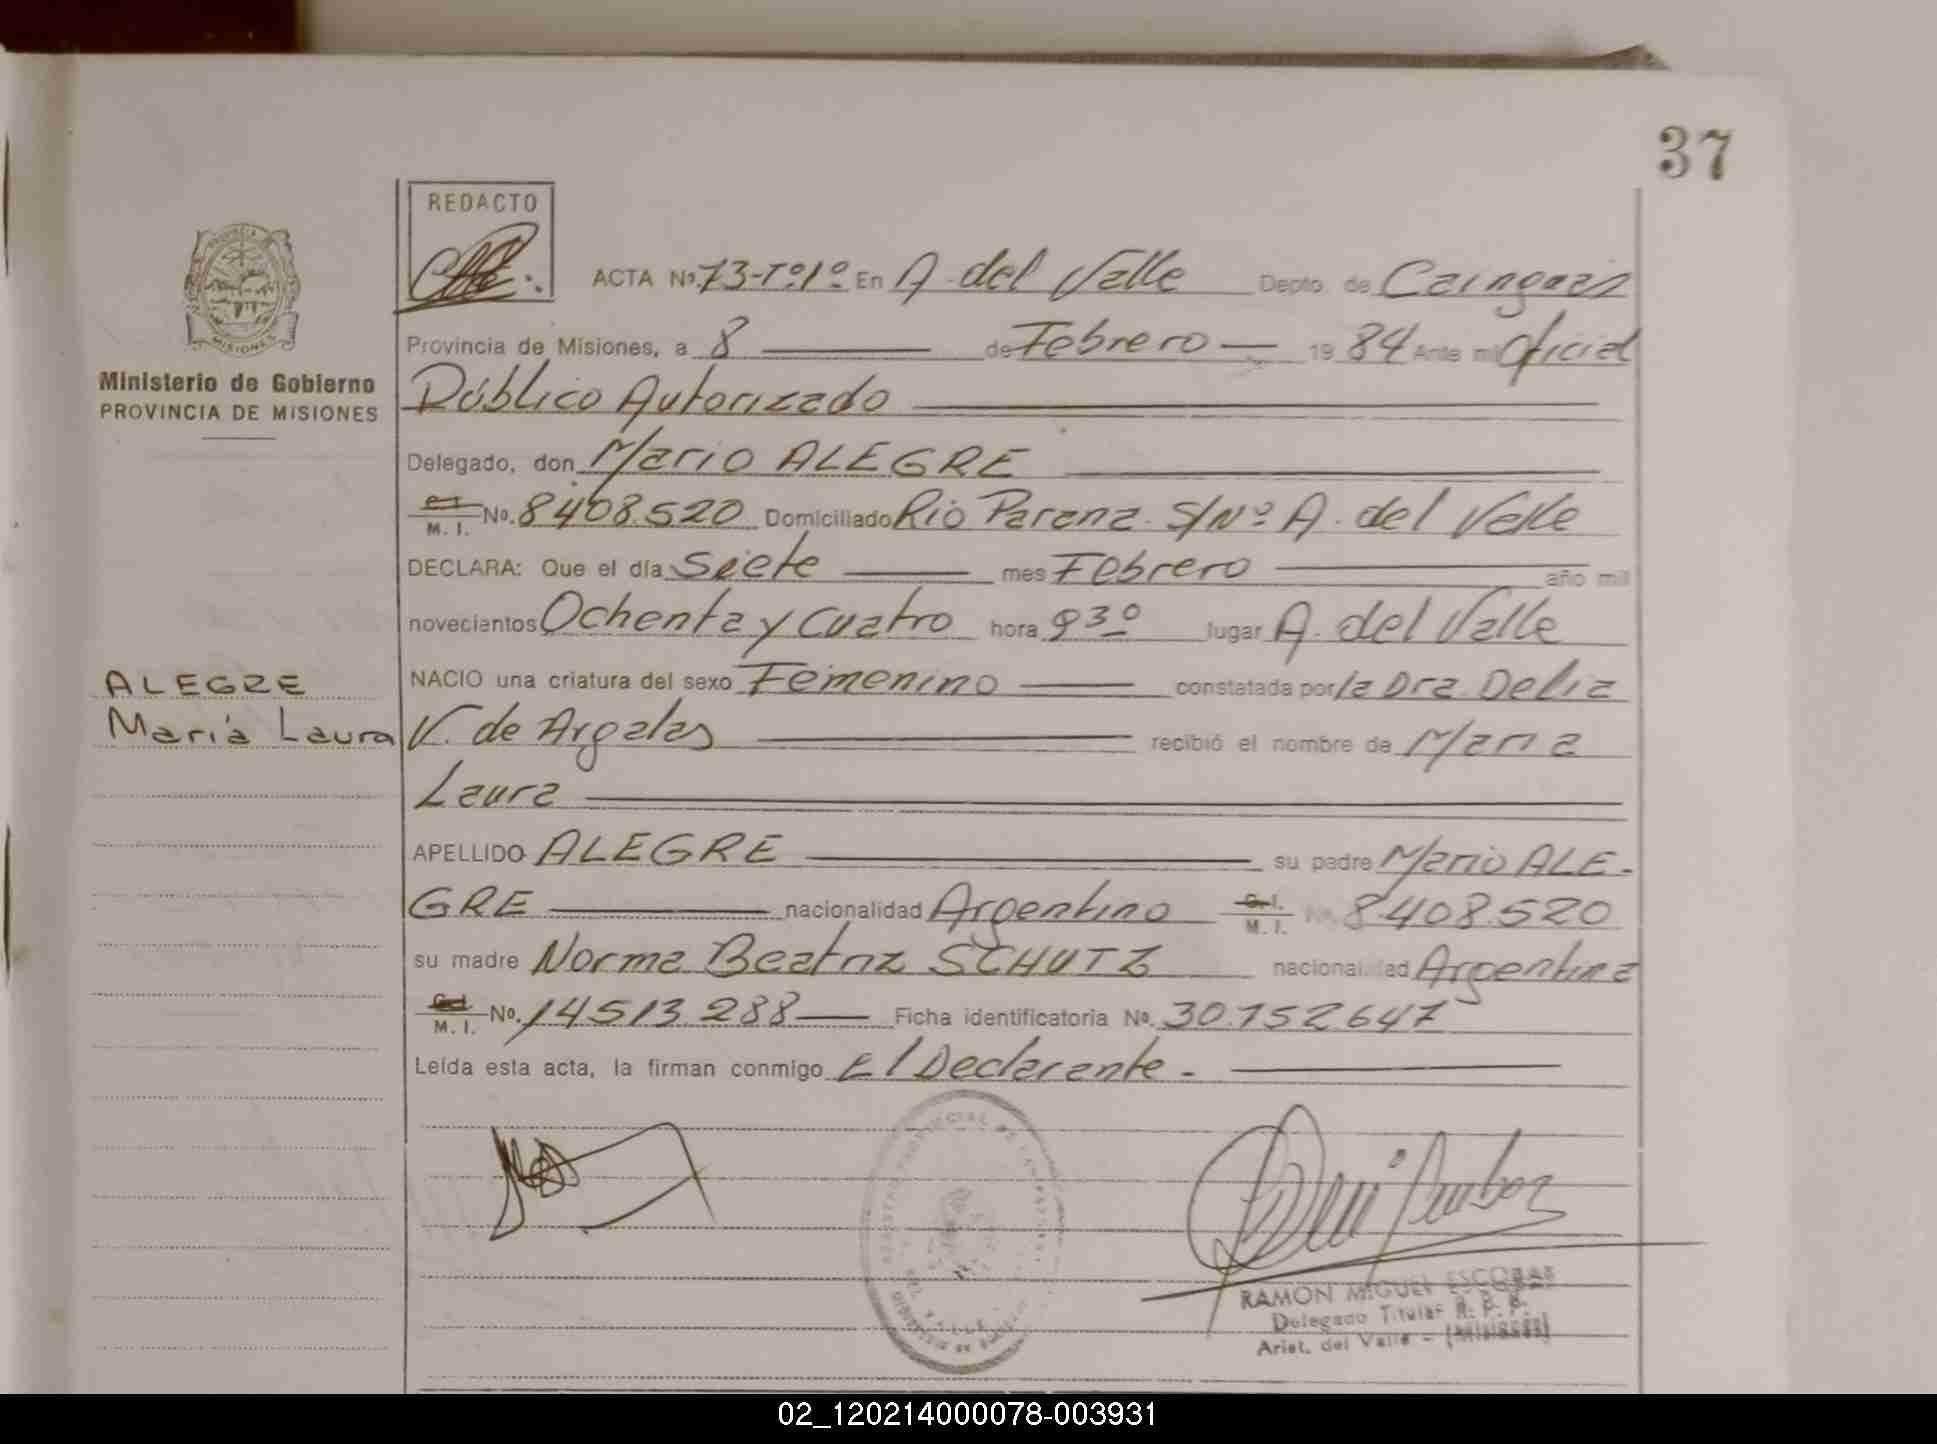 37
REDACTO
ACTA Nº. 73-Tº.1º En A. del Valle Depto. de Cainguás
Provincia de Misiones, a 8 de Febrero 19 84 Ante mi Oficial
Ministerio de Gobierno
PROVINCIA DE MISIONES
Público Autorizado
Delegado, don Mario ALEGRE
M. I. Nº. 8408.520 Domiciliado Rio Parana S/Nº A. del Valle
DECLARA: Que el día Siete mes Febrero año mil
novecientos Ochenta y Cuatro hora 930 lugar A. del Valle
ALEGRE
NACIO una criatura del sexo Femenino constatada por la Dra. Delia
María Laura
V. de Argalas recibió el nombre de Maria
Laura
APELLIDO ALEGRE su padre Mario ALE-
GRE nacionalidad Argentino C.I. M. I. No. 8.408.520
su madre Norma Beatriz SCHUTZ nacionalidad Argentina
C.I. M. I. Nº. 14513.288 Ficha identificatoria Nº. 30.752647
Leída esta acta, la firman conmigo El Declarante.-
RAMON MIGUEL ESCOBAR
Delegado Titular R. P. P.
Arist. del Valle - (Misiones)
02_120214000078-003931